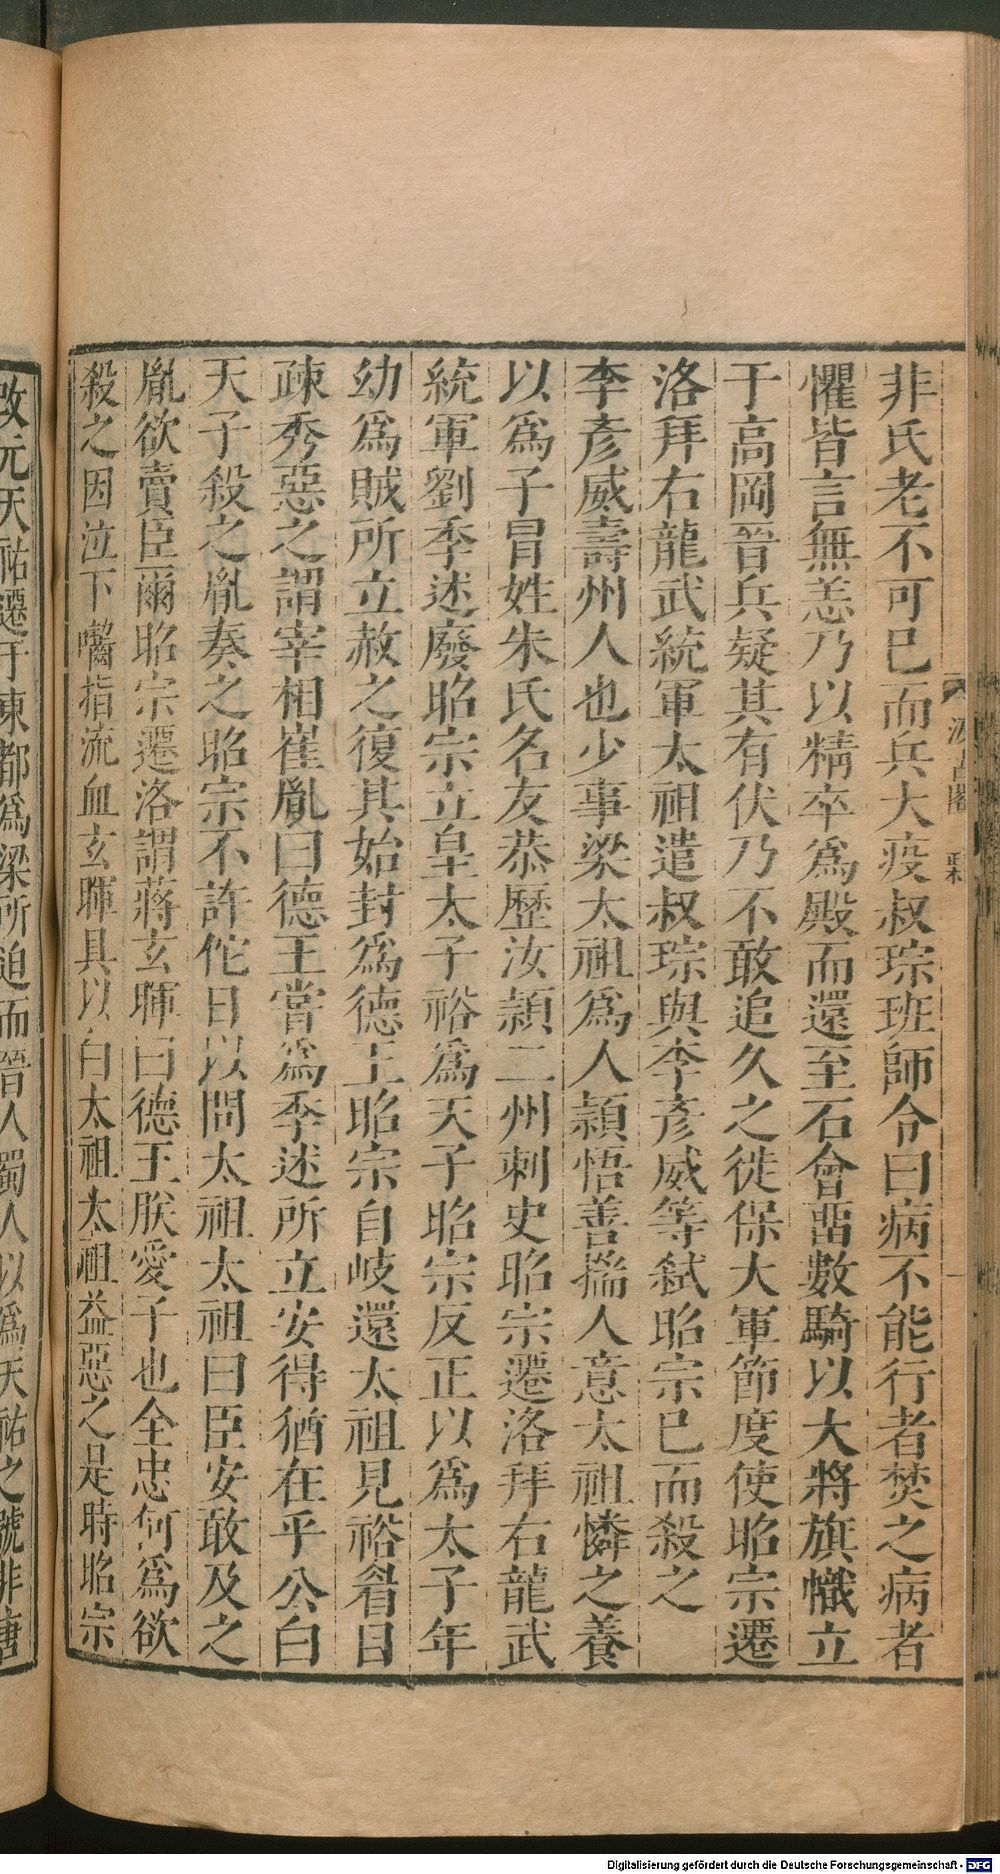 非氏老不可已而兵大疫叔琮班師令曰病不能行者焚之病者
懼皆言無恙乃以精卒爲殿而還至石會畱數騎以大將旗幟立
于高岡晉兵疑其有伏乃不敢追久之徙保大軍節度使昭宗遷
洛拜右龍武統軍太祖遣叔琮與李彥威等弒昭宗已而殺之
李彥威壽州人也少事梁太祖爲人頴悟善揣人意太祖憐之養
以爲子冒姓朱氏名友恭歷汝頴二州刺史昭宗遷洛拜右龍武
統軍劉季述廢昭宗立皇太子裕爲天子昭宗反正以爲太子年
幼爲賊所立赦之復其始封爲德王昭宗自岐還太祖見裕眉目
疎秀惡之謂宰相崔胤曰德王嘗爲季述所立安得猶在乎公白
天子殺之胤奏之昭宗不許佗日以問太祖太祖曰臣安敢及之
胤欲賣臣爾昭宗遷洛謂蔣玄暉曰德王朕愛子也全忠何爲欲
殺之因泣下嚙指流血玄暉具以白太祖太祖益惡之是時昭宗
改元天祐遷于東都爲梁所迫而晉人蜀人以爲天祐之號非唐
汲古閣
Digitalisierung gefördert durch die Deutsche Forschungsgemeinschaft - DFG